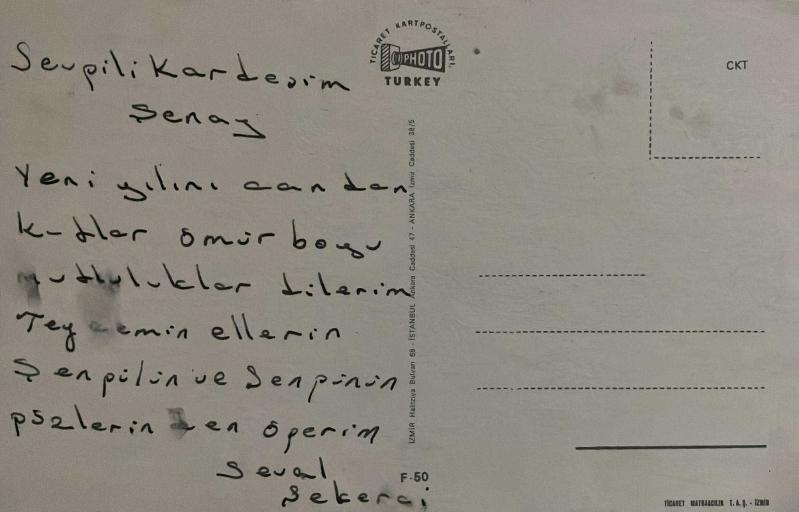 Sevgili Kardeşim
Şenay
Yeni yılını candan
kutlar ömür boyu
mutluluklar dilerim
Teyzemin ellerin
Şengülün ve Sengünün
gözlerinden öperim
Seval
Şekerci
TİCARET KARTPOSTALLARI.
PHOTO
TURKEY
CKT
İZMİR Halitziya Bulvarı 69 - İSTANBUL Ankara Caddesi 47 - ANKARA İzmir Caddesi 38/5
F-50
TİCARET MATBAACILIK T. A. Ş. - İZMİR